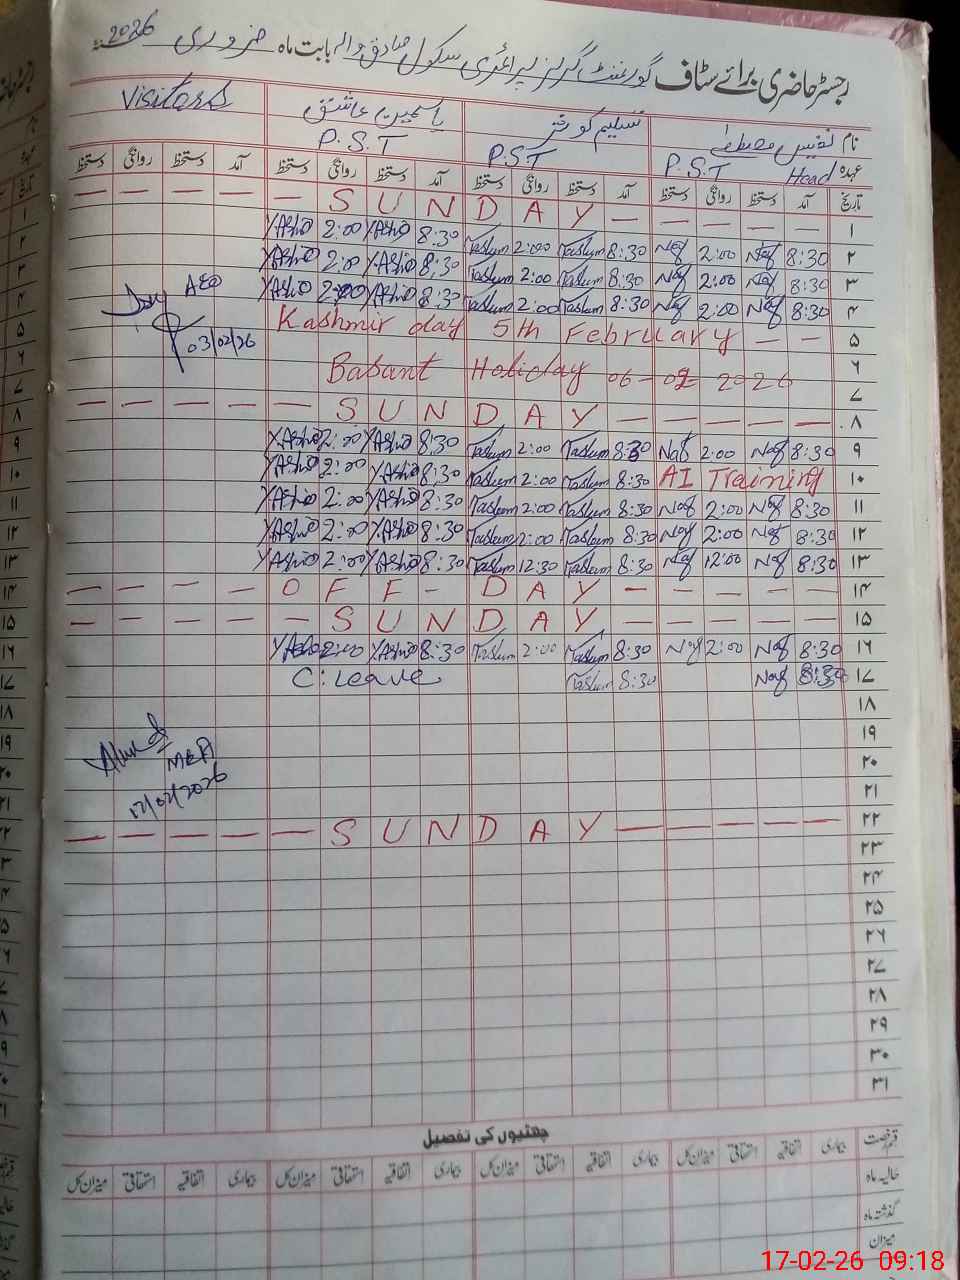 رجسٹر حاضری برائے سٹاف گورنمنٹ گرلز پرائمری سکول صادق والہ بابت ماہ فروری سنہ 2026
نام نفیس مصطفیٰ تسلیم کوثر یاسمین عاشق Visitors
عہدہ Head P.S.T P.ST P.S.T
تاریخ آمد دستخط روانگی دستخط آمد دستخط روانگی دستخط آمد دستخط روانگی دستخط آمد دستخط روانگی دستخط
— — — — — S U N D A Y — — — — — ۱
YAshiq 2:00 YAshiq 8:30 Taslum 2:00 Taslum 8:30 Naf 2:00 Naf 8:30 ۲
YAshiq 2:00 YAshiq 8:30 Taslum 2:00 Taslum 8:30 Naf 2:00 Naf 8:30 ۳
YAshiq 2:00 YAshiq 8:30 Taslum 2:00 Taslum 8:30 Naf 2:00 Naf 8:30 ۴
AEO
03/02/26
Kashmir day 5th February — — ۵
Basant Holiday 06-02-2026 ۶
۷
— — — — — S U N D A Y — — — — — ۸
YAshiq 2:00 YAshiq 8:30 Taslum 2:00 Taslum 8:30 Naf 2:00 Naf 8:30 ۹
YAshiq 2:00 YAshiq 8:30 Taslum 2:00 Taslum 8:30 AI Training ۱۰
YAshiq 2:00 YAshiq 8:30 Taslum 2:00 Taslum 8:30 Naf 2:00 Naf 8:30 ۱۱
YAshiq 2:00 YAshiq 8:30 Taslum 2:00 Taslum 8:30 Naf 2:00 Naf 8:30 ۱۲
YAshiq 2:00 YAshiq 8:30 Taslum 12:30 Taslum 8:30 Naf 12:00 Naf 8:30 ۱۳
— — — — O F F - D A Y — — — — — ۱۴
— — — — — S U N D A Y — — — — — ۱۵
YAshiq 2:00 YAshiq 8:30 Taslum 2:00 Taslum 8:30 Naf 2:00 Naf 8:30 ۱۶
C: Leave Taslum 8:30 Naf 8:30 ۱۷
۱۸
۱۹
MEA
۲۰
17/02/2026
۲۱
— — — — — S U N D A Y — — — — — ۲۲
۲۳
۲۴
۲۵
۲۶
۲۷
۲۸
۲۹
۳۰
۳۱
چھٹیوں کی تفصیل
قسم رخصت بیماری اتفاقیہ استحقاقی میزان کل بیماری اتفاقیہ استحقاقی میزان کل بیماری اتفاقیہ استحقاقی میزان کل بیماری اتفاقیہ استحقاقی میزان کل
حالیہ ماہ
گذشتہ ماہ
میزان
17-02-26 09:18